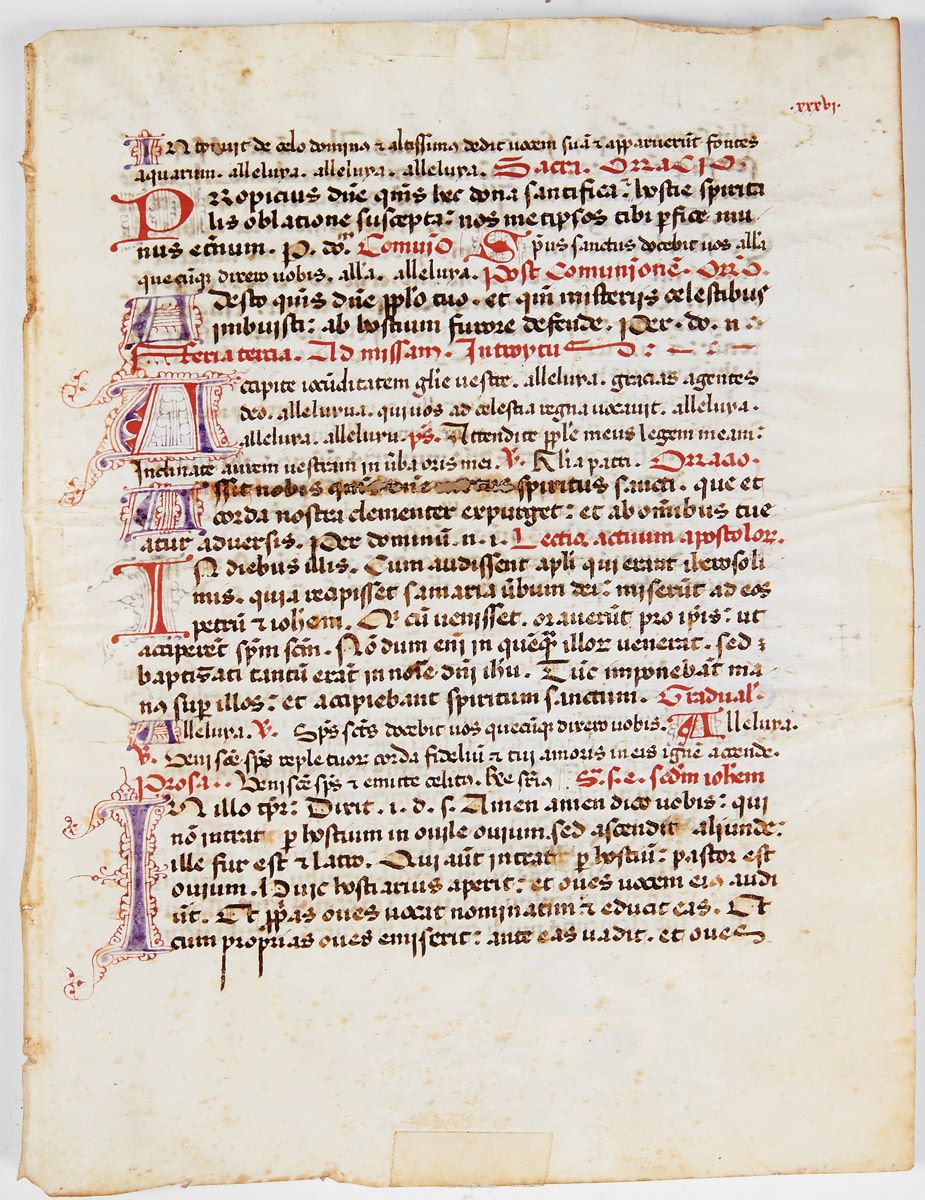 ·xxxvi·
Intonuit de celo dominus ⁊ altissimus dedit uocem suā ⁊ apparuerūt fontes
aquarum. alleluya. alleluya. alleluya. Sacra. ORRACIO.
PRropicius dn̄e qm̄s hec dona sanctifica: hostie spirita
lis oblatione suscepta: nos metipsos tibi ꝑfice mu
nus et̄num. P. do. Comuīo Spiritus sanctus docebit uos all'a
quecūqꝫ dixero uobis. all'a. alleluya. Post Comunionē. Orr̄o.
Adesto qm̄s dn̄e ppl'o tuo. et qm̄ misteriis celestibus
imbuisti: ab hostium furore defende. Per. do. n
Feria tercia. Ad missam. Introytu
Accipite iocūditatem gl'ie uestre. alleluya. gracias agentes
deo. alleluyua. qui uos ad celestia regna uocauit. alleluya.
alleluya. alleluya. p̄s. Attendite pp̄le meus legem meam:
Inclinate aurem uestram in ūba oris mei. ℣. Gl'ia patri. Orracio.
Assit nobis qm̄s dn̄e spiritus sancti. que et
corda nostra clementer expurget: et ab om̄ibus tue
atur aduersis. Per dominū. n. i. Lectio actuum apostoloꝝ.
IN diebus illis. Cum audissent apl'i qui erant iherosoli
mis. quia recepisset samaria ūbum dei: miserūt ad eos
petrū ⁊ ioh̄em. Et cū uenisset. orauerūt pro ip̄is: ut
acciperēt sp̄m sc̄m. Nōdum eni in quēqꝫ illoꝝ uenerat. sed
baptiꝫati tantū erāt in noīe dn̄i ih̄u. Tūc imponebāt ma
nꝰ suꝑ illos: et accipiebant spiritum sanctum. Gradual'.
Alleluya. ℣. Sp̄s sc̄ts docebit uos quecūqꝫ dixero uobis. Alleluya.
℣. Veni sc̄e sp̄s reple tuoꝝ corda fideliū ⁊ tui amoris in eis ignē accende.
Prosa.. Veni sc̄e sp̄s ⁊ emitte celitꝰ. S. s. e. sec̄dm ioh̄em
IN illo tp̄r: Dixit. i. d. s. Amen amen dico uobis: qui
nō intrat ꝑ hostium in ouile ouium. sed ascendit aliunde:
ille fur est ⁊ latro. Qui aūt intrat ꝑ hostiū: pastor est
ouium. Huic hostiarius aperit: et oues uocem eiꝰ audi
ūt. Et ꝓp̄as oues uocat nominatim ⁊ educit eas. Et
cum proprias oues emiserit: ante eas uadit. et oues